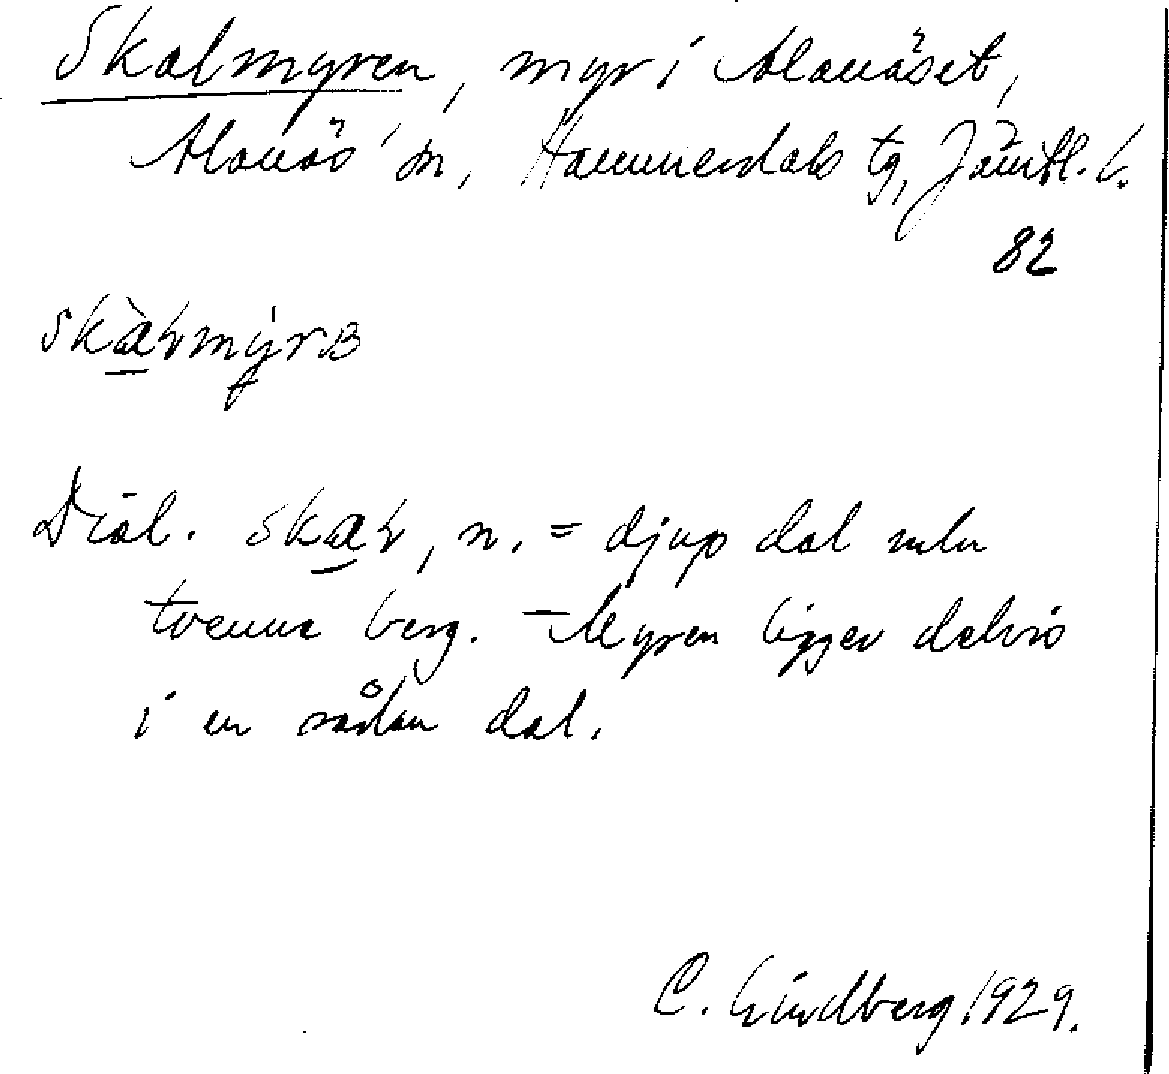 Skalmyren, myr i Alanäset,
Alanäs sn, Hammerdals tg, Jämtl. l.
82
skàɽmýrɞ
Dial. skaɽ, n. = djup dal mln
tvenne berg. – Myren ligger delvis
i en sådan dal.
C. Lindberg 1929.